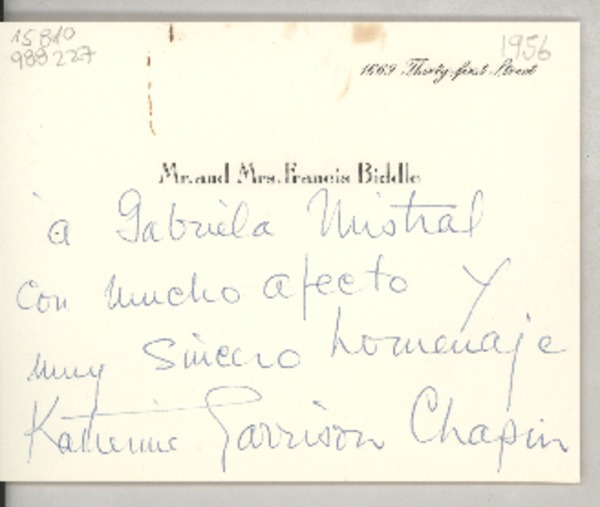 15810
989227
1956
1669 Thirty-first Street
Mr. and Mrs. Francis Biddle
à Gabriela Mistral
con mucho afecto y
muy sincero homenaje
Katherine Garrison Chapin